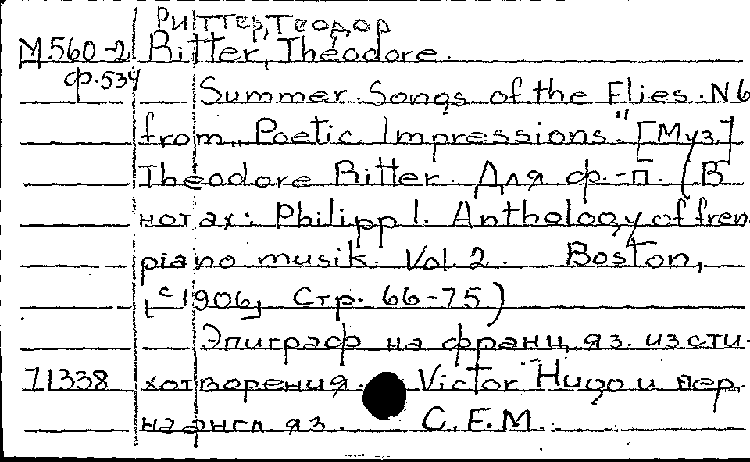 Риттер, Теодор
М560-2 Ritter, Théodore.
ф.534 Summer Songs of the Flies. N6
from „Poetic Impressions" [Муз.]
Theodore Ritter. Для ф.-п. (В
нотах: Philipp I. Anthology of fren
piano musik Vol. 2. Boston,
[c1906] Стр. 66-75)
Эпиграф на франц. яз. из сти-
71338 хотворения Victor Hugo и пер.
на англ. яз. C.F.M.